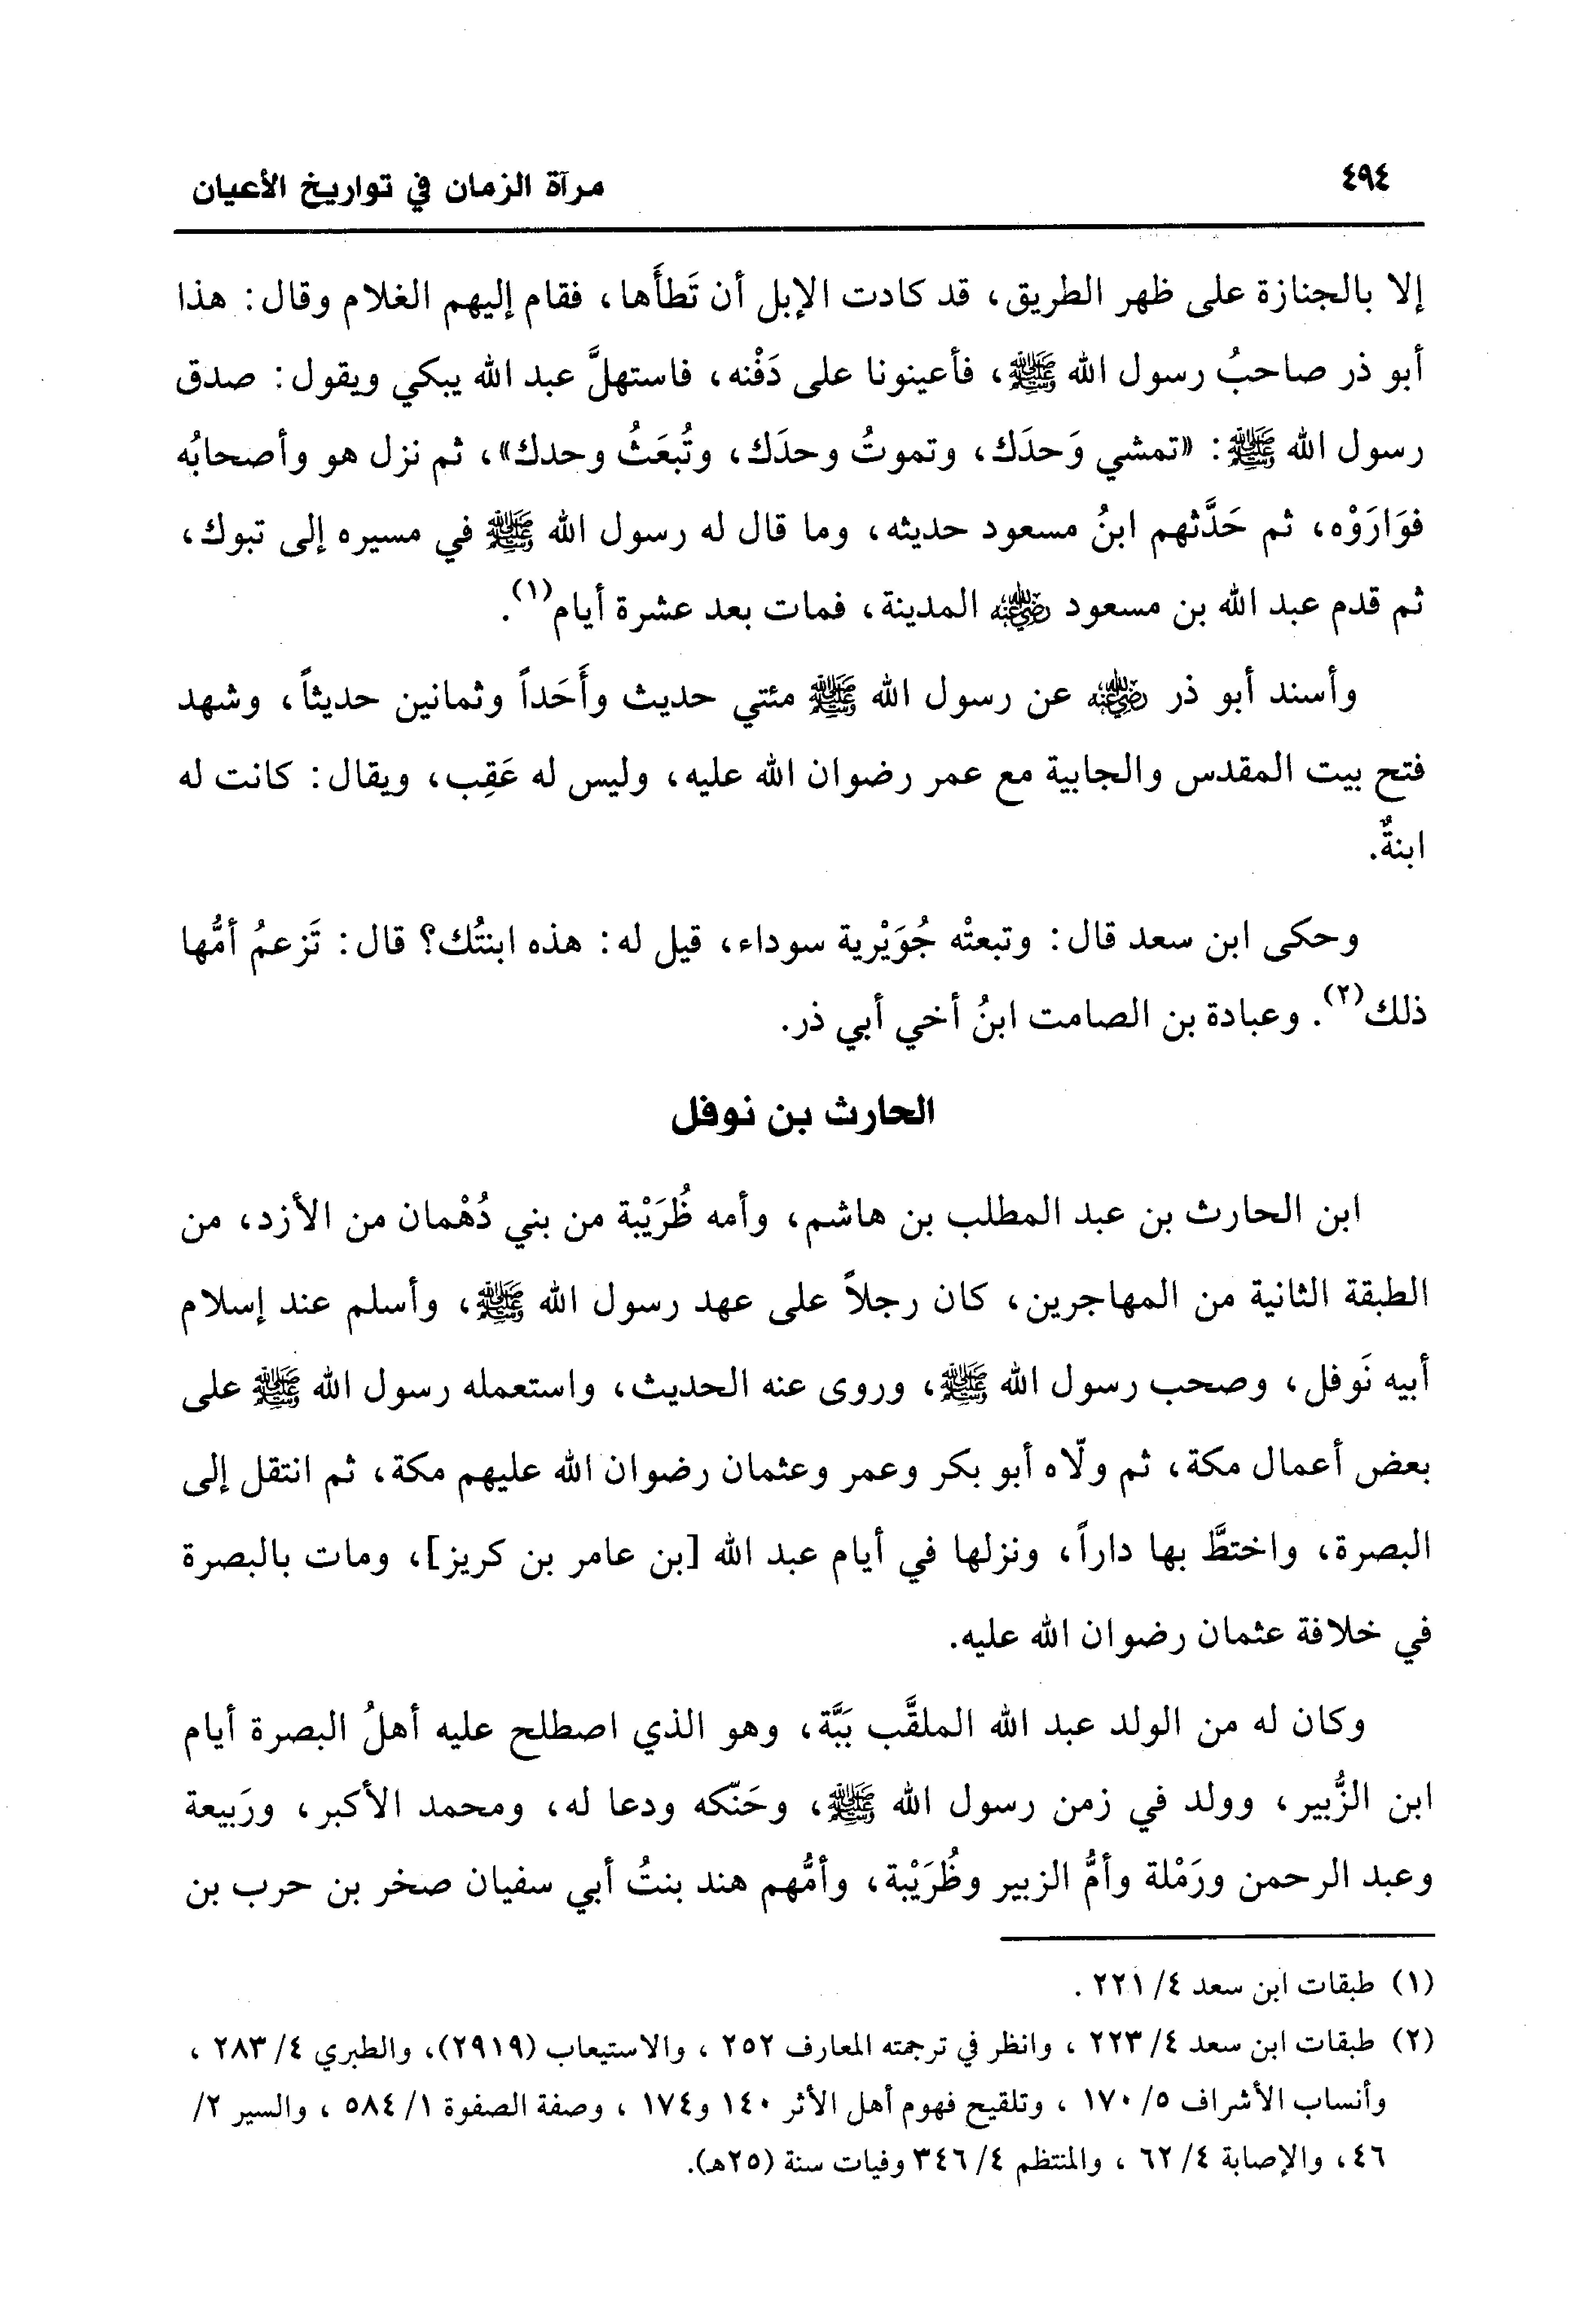 ٤٩٤ مرآة الزمان في تواريخ الأعيان
إلا بالجنازة على ظهر الطريق، قد كادت الإبل أن تَطأَها، فقام إليهم الغلام وقال: هذا
أبو ذر صاحبُ رسول الله ﷺ، فأعينونا على دَفْنه، فاستهلَّ عبد الله يبكي ويقول: صدق
رسول الله ﷺ: «تمشي وَحدَك، وتموتُ وحدَك، وتُبعَثُ وحدك»، ثم نزل هو وأصحابُه
فوَارَوْه، ثم حَدَّثهم ابنُ مسعود حديثه، وما قال له رسول الله ﷺ في مسيره إلى تبوك،
ثم قدم عبد الله بن مسعود رضي الله عنه المدينة، فمات بعد عشرة أيام(١).
وأسند أبو ذر رضي الله عنه عن رسول الله ﷺ مئتي حديث وأَحَداً وثمانين حديثاً، وشهد
فتح بيت المقدس والجابية مع عمر رضوان الله عليه، وليس له عَقِب، ويقال: كانت له
ابنةٌ.
وحكى ابن سعد قال: وتبعتْه جُوَيْرية سوداء، قيل له: هذه ابنتُك؟ قال: تَزعمُ أمُّها
ذلك(٢). وعبادة بن الصامت ابنُ أخي أبي ذر.
الحارث بن نوفل
ابن الحارث بن عبد المطلب بن هاشم، وأمه ظُرَيْبة من بني دُهْمان من الأزد، من
الطبقة الثانية من المهاجرين، كان رجلاً على عهد رسول الله ﷺ، وأسلم عند إسلام
أبيه نَوفل، وصحب رسول الله ﷺ، وروى عنه الحديث، واستعمله رسول الله ﷺ على
بعض أعمال مكة، ثم ولّاه أبو بكر وعمر وعثمان رضوان الله عليهم مكة، ثم انتقل إلى
البصرة، واختطَّ بها داراً، ونزلها في أيام عبد الله [بن عامر بن كريز]، ومات بالبصرة
في خلافة عثمان رضوان الله عليه.
وكان له من الولد عبد الله الملقَّب بَبَّة، وهو الذي اصطلح عليه أهلُ البصرة أيام
ابن الزُّبير، وولد في زمن رسول الله ﷺ، وحَنّكه ودعا له، ومحمد الأكبر، ورَبيعة
وعبد الرحمن ورَمْلة وأمُّ الزبير وظُرَيْبة، وأمُّهم هند بنتُ أبي سفيان صخر بن حرب بن
(١) طبقات ابن سعد ٤/ ٢٢١ .
(٢) طبقات ابن سعد ٤/ ٢٢٣ ، وانظر في ترجمته المعارف ٢٥٢ ، والاستيعاب (٢٩١٩)، والطبري ٤/ ٢٨٣ ،
وأنساب الأشراف ٥/ ١٧٠ ، وتلقيح فهوم أهل الأثر ١٤٠ و١٧٤ ، وصفة الصفوة ١/ ٥٨٤ ، والسير ٢/
٤٦، والإصابة ٤/ ٦٢ ، والمنتظم ٤/ ٣٤٦ وفيات سنة (٢٥هـ).